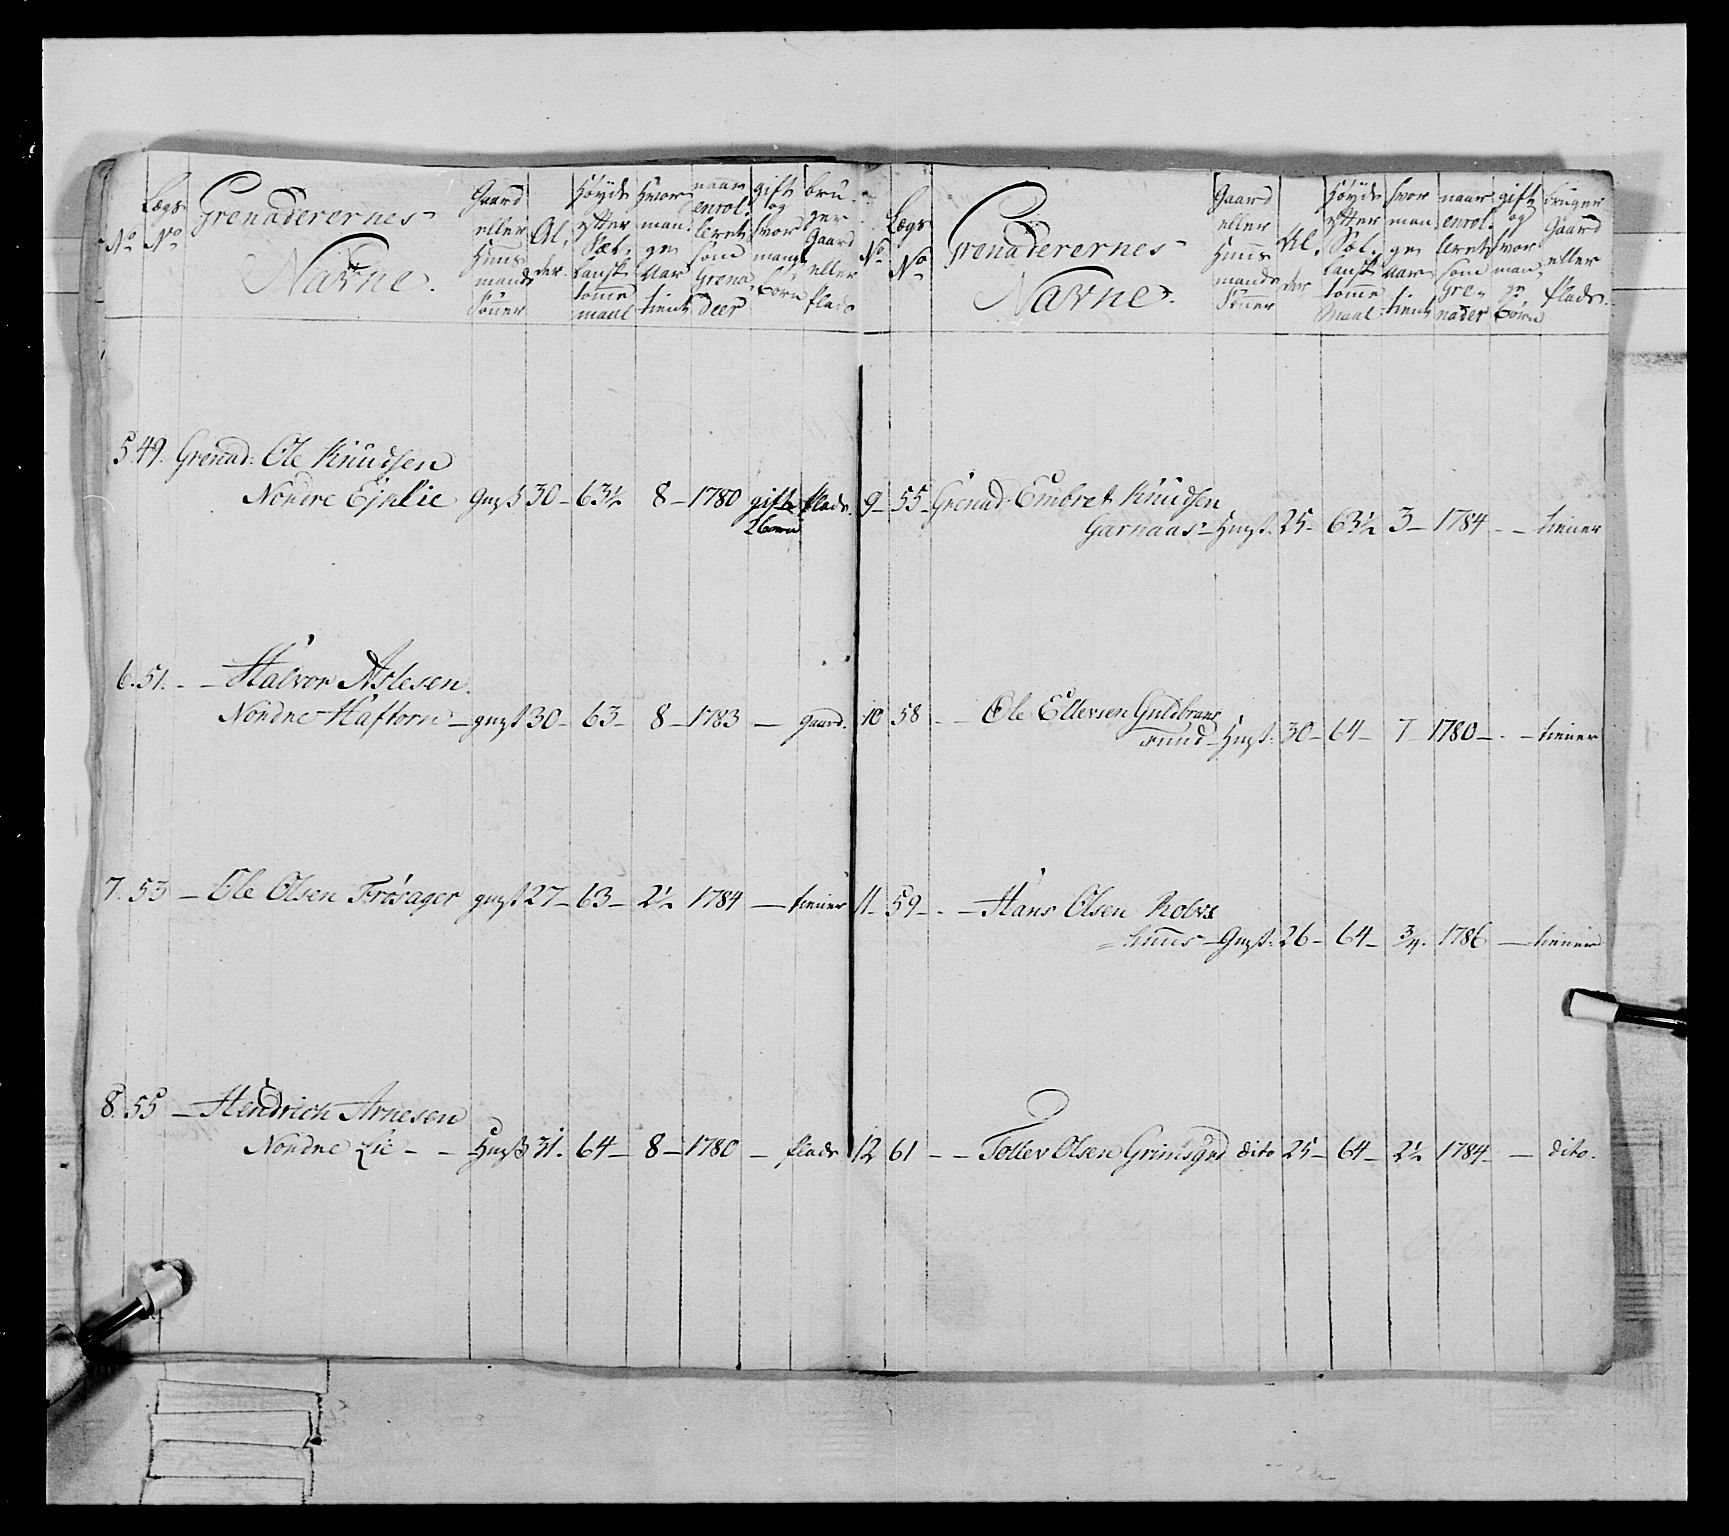 No
Lægs No
Grenaderernes Navne.
Gaard eller Huus mands Sønner
Al, der.
Høyde efter Sæl, lansk tomme maal
Hvor mange Aar tient
naar enrol: leret som Grena, deer
gift og hvor mange børn
bruger Gaard eller plads
5 49. Grenad: Ole Knudsen
Nordre gmß 30 – 63½ 8 – 1780 gift plads.
2 børn
6. 51. – – Halvor Aslesen.
Nordre Haftorn – gmß 30 – 63 – 8 – 1783 – gaard.
7. 53 – Ole Olsen Frøsager gmß 27 – 63 – 2½ 1784 – tiener
8. 55 – Hendrich Arnesen
Nordre Lie – – Hmß 31. 64 – 8 – 1780 – plads
No
Lægs No
Grenaderernes Navne.
Gaard eller Huus mands Sønner
Al, der
Høyde efter Sæl, lansk tomme Maal
hvor man, ge Aar tient
naar enrol: leret som Gre, nader
gift og hvor man, ge børn
bruger Gaard eller plads.
9 – 55 – Grenad: Embret Knudsen
Garnaas – Hmß. 25 – 63½ 3 – 1784 – – tiener
10 58 – – Ole Ellevsen Guldbrans
rund – Hmß: 30 – 64 – 7 – 1780 – . – tiener
11 – 59 – . – Hans Olsen
– Gmß: 26 – 64 – ¾. 1786 – tiener
12 61 – – Tollev Olsen dito 25 – 64 – 2½ 1784 – – dito.